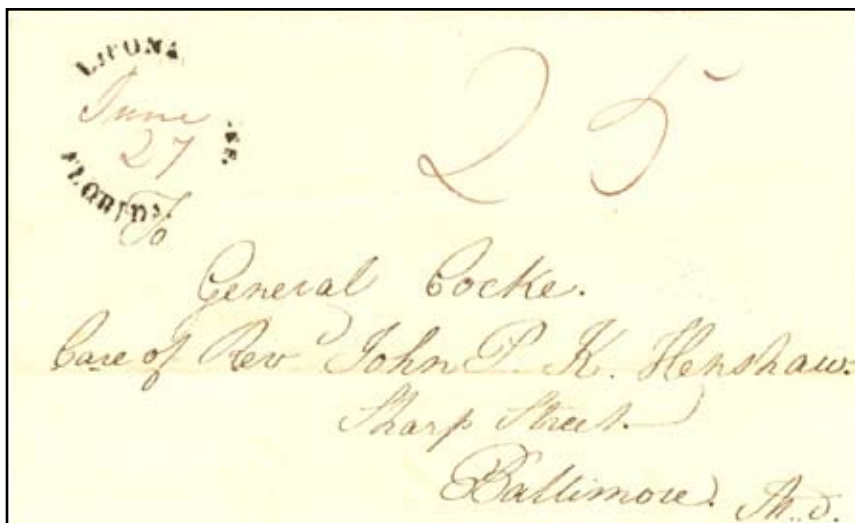 LIPONA
June
27
FLORIDA
25
To
General Cocke.
Care of Rev John P. K. Henshaw.
Sharp Street
Baltimore. Md.